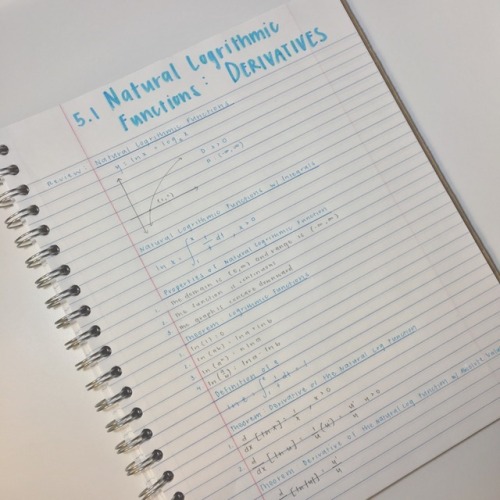 5.1 Natural Logrithmic
Functions: DERIVATIVES
Review: Natural Logrithmic Functions
y = ln x = log_e x
D: x > 0
R: (-∞, ∞)
Natural Logrithmic Functions w/ Integrals
ln x = ∫₁ˣ 1/t dt, x > 0
Properties of Natural Logrithmic Function
1. The domain is (0, ∞) and range is (-∞, ∞)
2. The function is continuous
3. The graph is concave downward
Theorem: Logrithmic Functions
1. ln(1) = 0
2. ln(ab) = ln a + ln b
3. ln(aⁿ) = n ln a
4. ln(a/b) = ln a - ln b
Definition of e
ln e = ∫₁ᵉ 1/t dt = 1
Theorem Derivative of the Natural Log Function
1. d/dx [ln x] = 1/x, x > 0
2. d/dx [ln u] = 1/u (u') = u'/u, u > 0
Theorem Derivative of the Natural Log Function w/ Absolute
d/dx [ln|u|] = u'/u